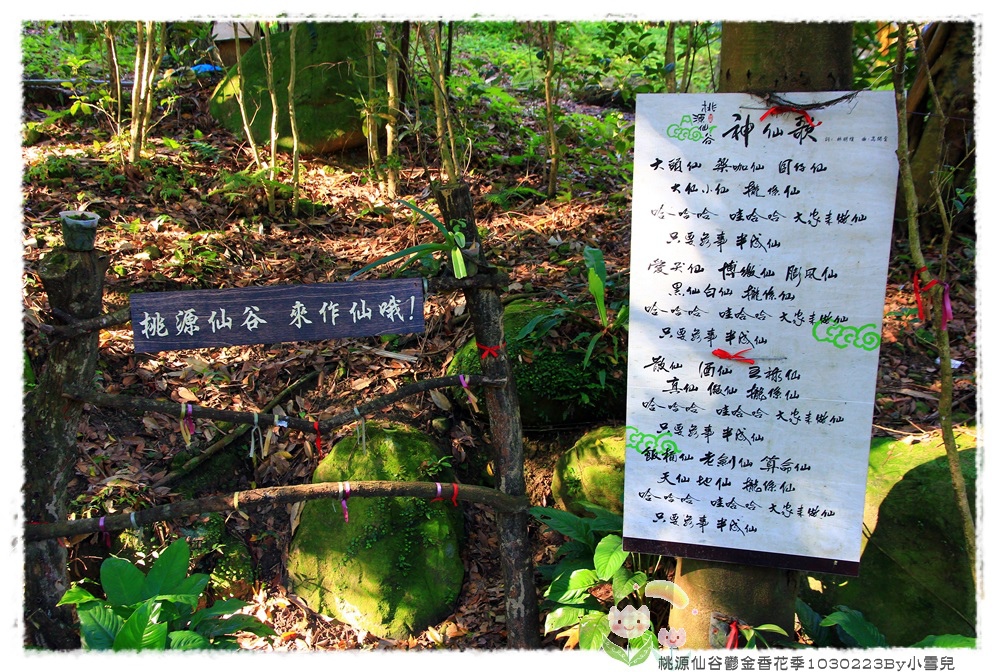 桃源仙谷 來作仙哦!
桃源仙谷
神仙歌
大頭仙 樂咖仙 囝仔仙
大仙小仙 攏係仙
哈一哈哈 哇哈哈 大家來做仙
只要無事 半成仙
愛哭仙 博繳仙 膨風仙
黑仙白仙 攏係仙
哈一哈哈 哇哈哈 大家來做仙
只要無事 半成仙
散仙 酒仙
真仙 假仙 攏係仙
哈一哈哈 哇哈哈 大家來做仙
只要無事 半成仙
飯桶仙 老劍仙 算命仙
天仙 地仙 攏係仙
哈一哈哈 哇哈哈 大家來做仙
只要無事 半成仙
桃源仙谷鬱金香花季1030223By小雪兒